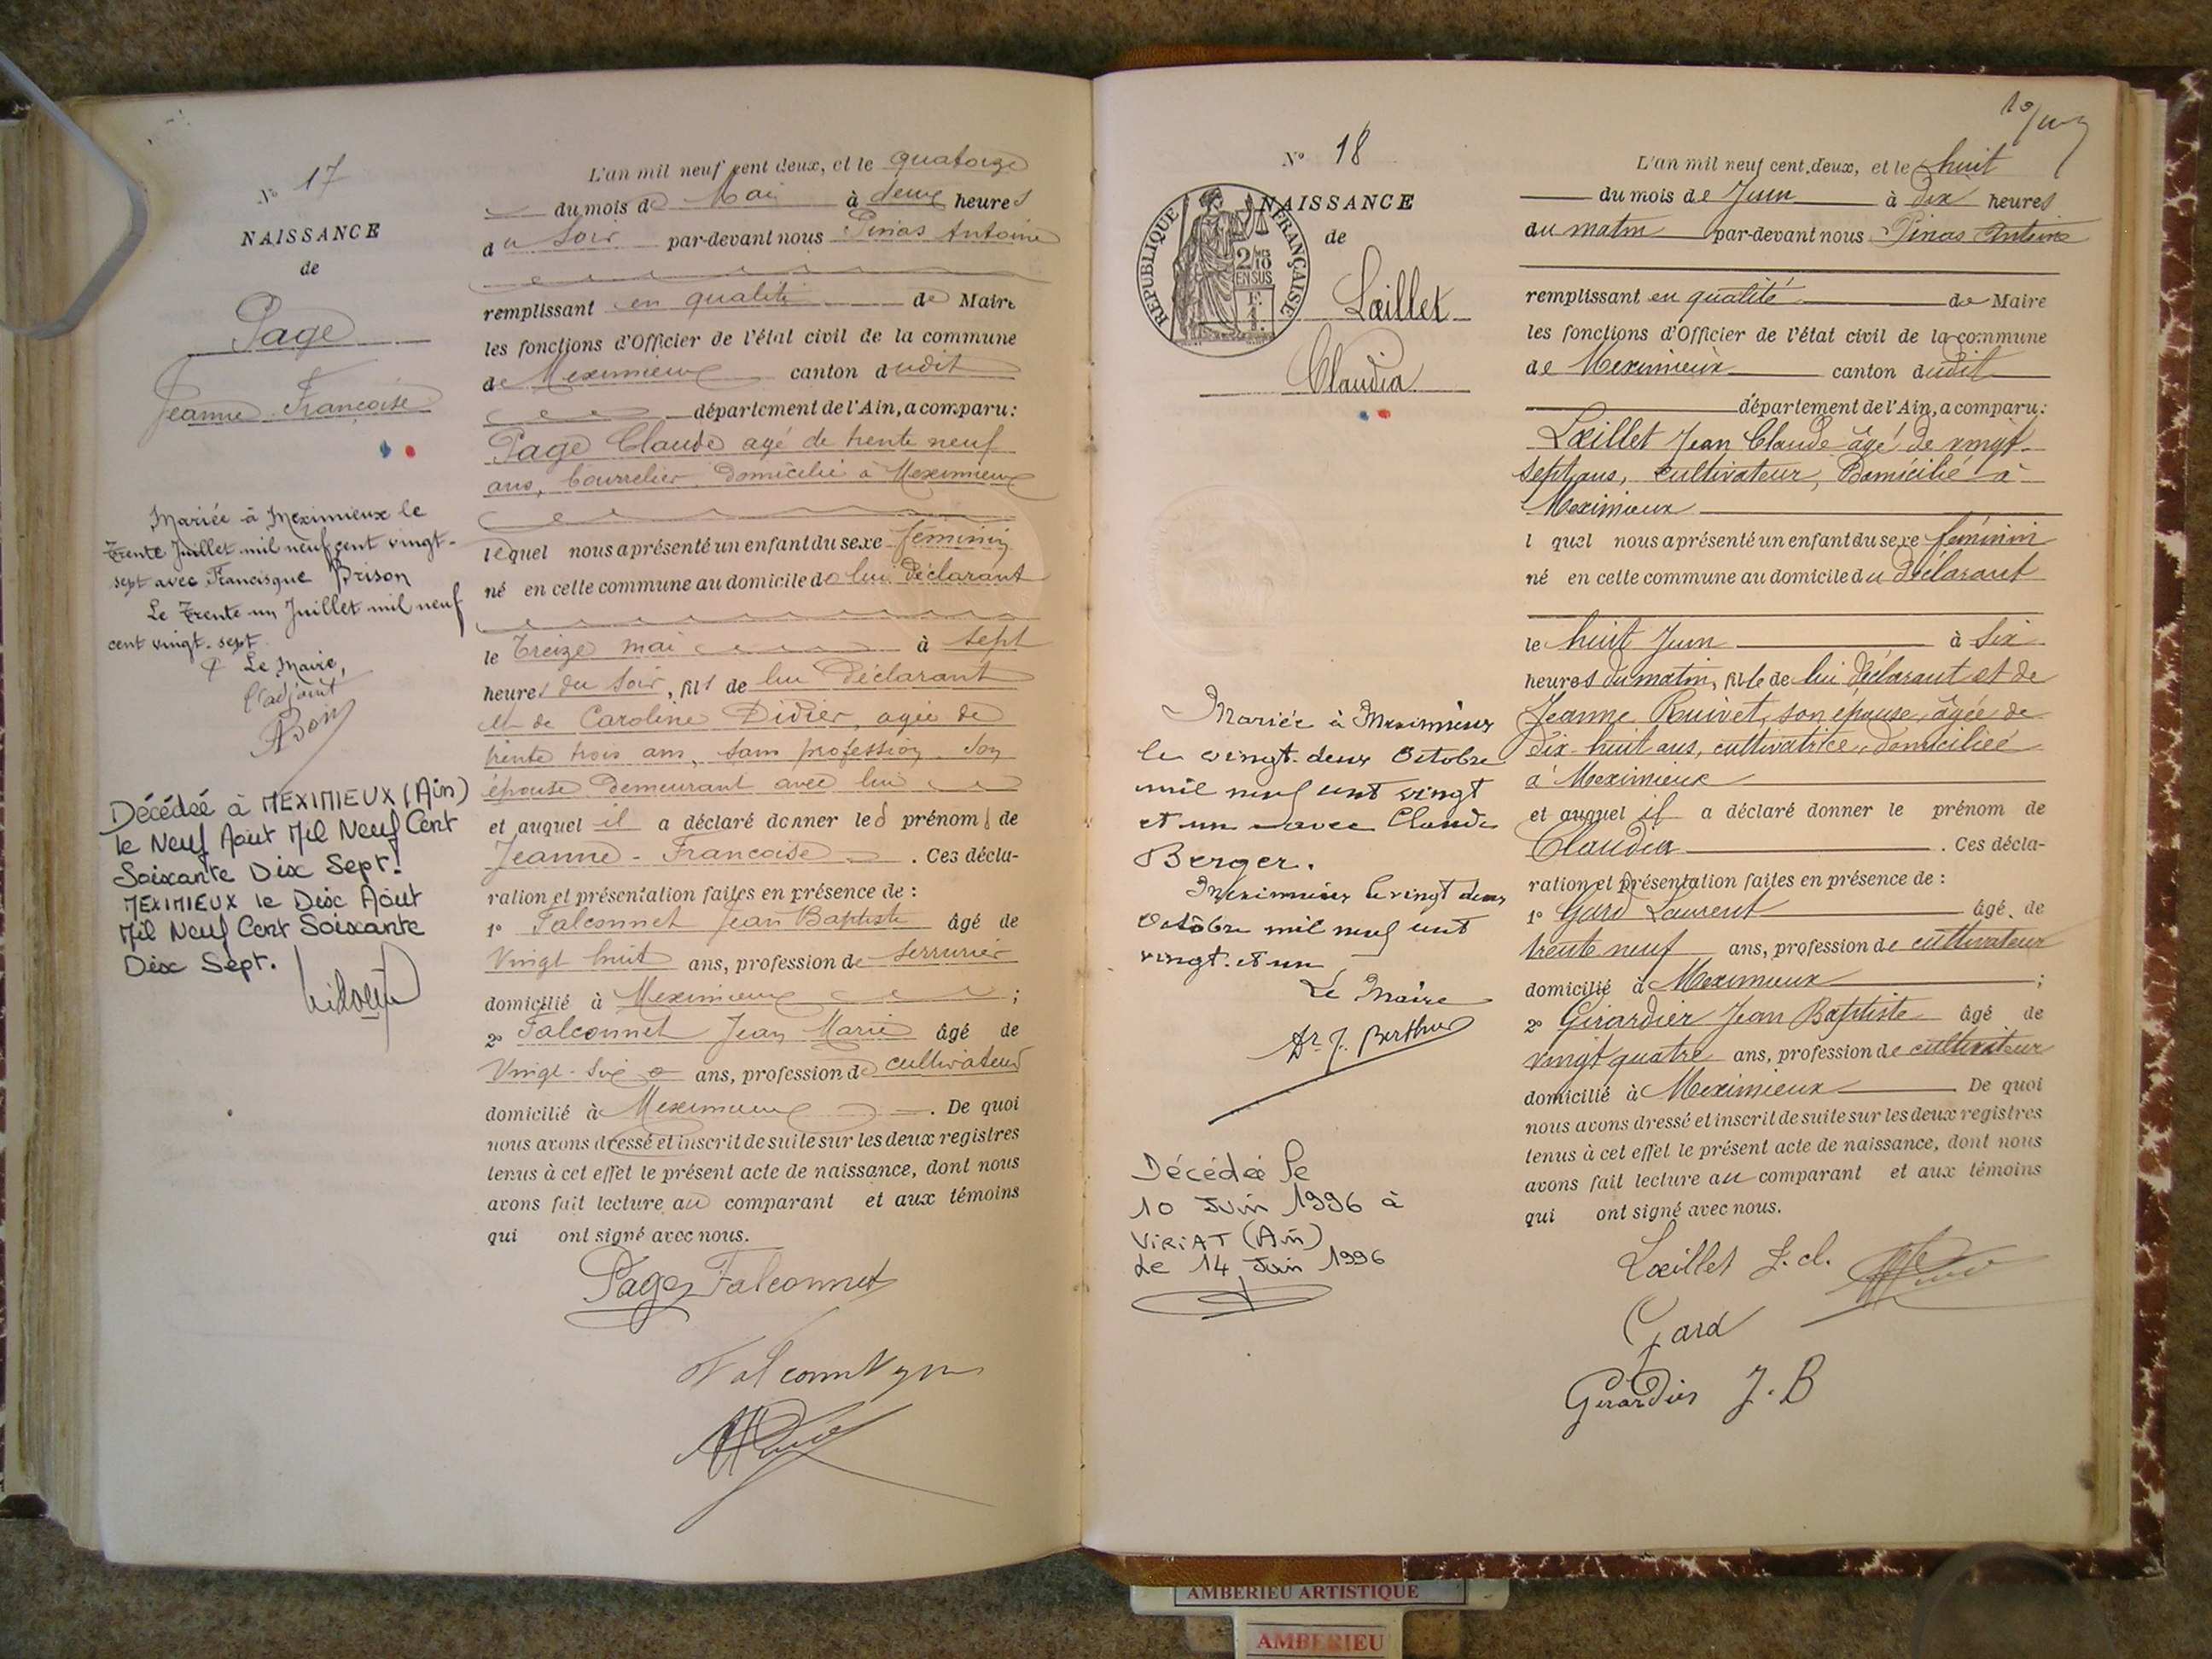 N° 17
NAISSANCE
de
Page
Jeanne Françoise
Mariée à Meximieux le
Trente Juillet mil neuf cent vingt-
sept avec Francisque Brison
Le Trente un Juillet mil neuf
cent vingt-sept
Le Maire,
l'adjoint
Décédée à MEXIMIEUX (Ain)
le Neuf Août Mil Neuf Cent
Soixante Dix Sept.
MEXIMIEUX le Dix Août
Mil Neuf Cent Soixante
Dix Sept.
L'an mil neuf cent deux, et le quatorze
du mois de Mai à deux heures
du soir par-devant nous Pinas Antoine
remplissant en qualité de Maire
les fonctions d'Officier de l'état civil de la commune
de Meximieux canton dudit
département de l'Ain, a comparu:
Page Claude agé de trente neuf
ans, bourrelier, domicilié à Meximieux
lequel nous a présenté un enfant du sexe féminin
né en cette commune au domicile de lui déclarant
le Treize mai à sept
heures du soir, fils de lui déclarant
et de Caroline Didier, agée de
trente trois ans, sans profession son
épouse demeurant avec lui
et auquel il a déclaré donner les prénoms de
Jeanne-Francoise. Ces décla-
ration et présentation faites en présence de :
1° Falconnet Jean Baptiste âgé de
Vingt huit ans, profession de serrurier
domicilié à Meximieux ;
2° Falconnet Jean Marie âgé de
Vingt-six ans, profession de cultivateur
domicilié à Meximieux. De quoi
nous avons dressé et inscrit de suite sur les deux registres
tenus à cet effet le présent acte de naissance, dont nous
avons fait lecture au comparant et aux témoins
qui ont signé avec nous.
Page Falconnet
10/
N° 18
NAISSANCE
de
RÉPUBLIQUE FRANÇAISE
2/10
EN SUS
Lœillet
Claudia
Mariée à Meximieux
le vingt-deux Octobre
mil neuf cent vingt
et un avec Claude
Berger.
Meximieux le vingt deux
Octobre mil neuf cent
vingt-et un
Le Maire
Dr J. Berthier
Décédée le
10 Juin 1996 à
VIRIAT (Ain)
Le 14 Juin 1996
L'an mil neuf cent deux, et le huit
du mois de Juin à dix heures
du matin par-devant nous Pinas Antoine
remplissant en qualité de Maire
les fonctions d'Officier de l'état civil de la commune
de Meximieux canton dudit
département de l'Ain, a comparu:
Lœillet Jean Claude âgé de vingt-
sept ans, cultivateur, domicilié à
Meximieux
l quel nous a présenté un enfant du sexe féminin
né en cette commune au domicile du déclarant
le huit Juin à six
heures du matin, fille de lui déclarant et de
Jeanne Ruivet, son épouse, âgée de
dix-huit ans, cultivatrice, domiciliée
à Meximieux
et auquel il a déclaré donner le prénom de
Claudia. Ces décla-
ration et présentation faites en présence de :
1° Gard Laurent âgé de
trente neuf ans, profession de cultivateur
domicilié à Meximieux ;
2° Girardier Jean Baptiste âgé de
vingt quatre ans, profession de cultivateur
domicilié à Meximieux De quoi
nous avons dressé et inscrit de suite sur les deux registres
tenus à cet effet le présent acte de naissance, dont nous
avons fait lecture au comparant et aux témoins
qui ont signé avec nous.
Lœillet J. cl.
Gard
Girardier J. B
AMBERIEU ARTISTIQUE
AMBERIEU